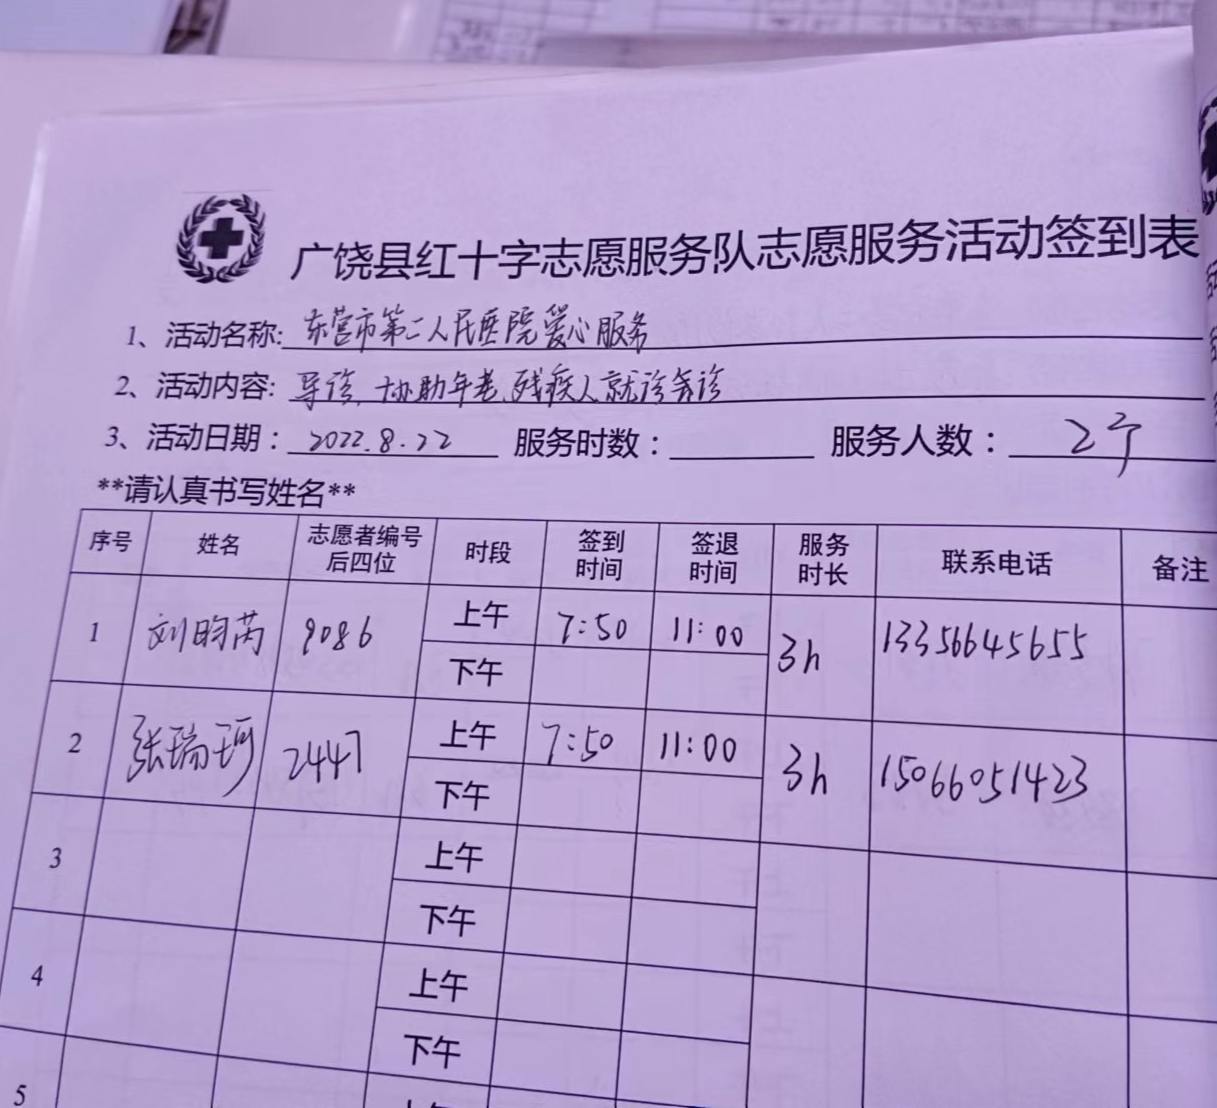 广饶县红十字志愿服务队志愿服务活动签到表
1、活动名称: 东营市第二人民医院爱心服务
2、活动内容: 导诊、协助年老、残疾人就诊等诊
3、活动日期：2022.8.22 服务时数： 服务人数：2个
**请认真书写姓名**
序号 姓名 志愿者编号后四位 时段 签到时间 签退时间 服务时长 联系电话 备注
1 刘昀芮 9086 上午 7:50 11:00 3h 13356645655
下午
2 张瑞珂 2447 上午 7:50 11:00 3h 15066051423
下午
3 上午
下午
4 上午
下午
5